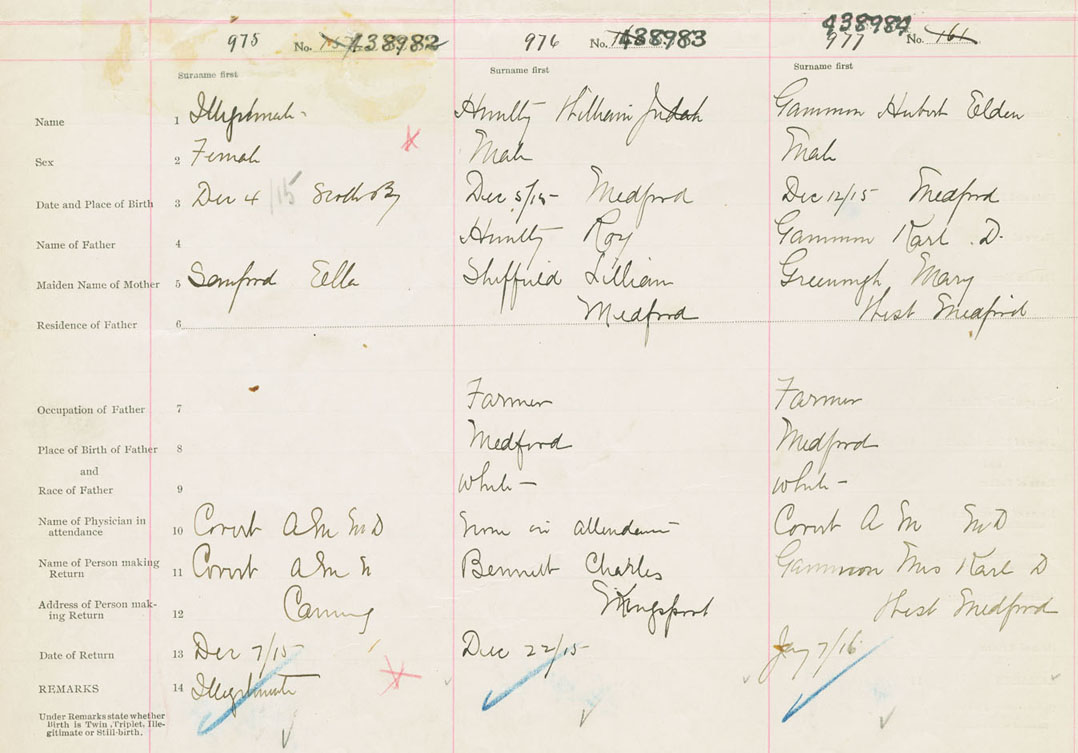 975 No. 157 438982 976 No. 438983 438984 977 No. 161
Surname first Surname first Surname first
Name 1 Illegitimate Huntly William Judah Gammon Hubert Elden
Sex 2 Female Male Male
Date and Place of Birth 3 Dec 4/15 Scotts Bay Dec 5/15 Medford Dec 12/15 Medford
Name of Father 4 Huntly Roy Gammon Karl . D.
Maiden Name of Mother 5 Sanford Ella Sheffield Lillian Greenough Mary
Residence of Father 6 Medford West Medford
Occupation of Father 7 Farmer Farmer
Place of Birth of Father 8 Medford Medford
and
Race of Father 9 White – White –
Name of Physician in
attendance 10 Covert A M M D None in attendance Covert A M M D
Name of Person making
Return 11 Covert A M Bennett Charles Gammon Mrs Karl D
Address of Person mak-
ing Return 12 Canning Kingsport West Medford
Date of Return 13 Dec 7/15 Dec 22/15 Jany 7/16
REMARKS 14 Illegitimate
Under Remarks state whether
Birth is Twin, Triplet, Ille-
gitimate or Still-birth.